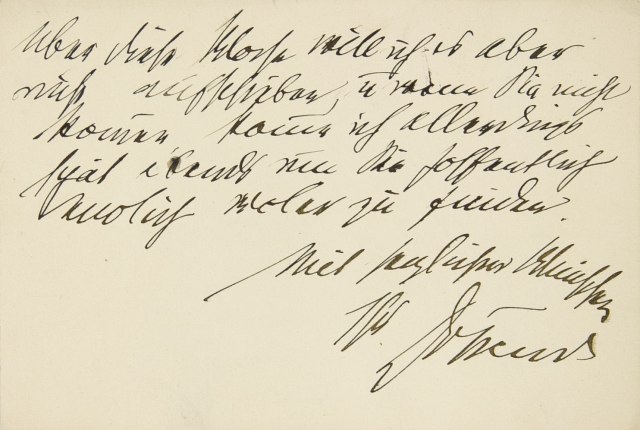 Über diese Woche will ich es aber
nicht aufschieben, u wenn Sie nicht
kommen komme ich allerdings
spät abends um Sie hoffentlich
endlich wohler zu finden.
Mit herzlichen
Ihr